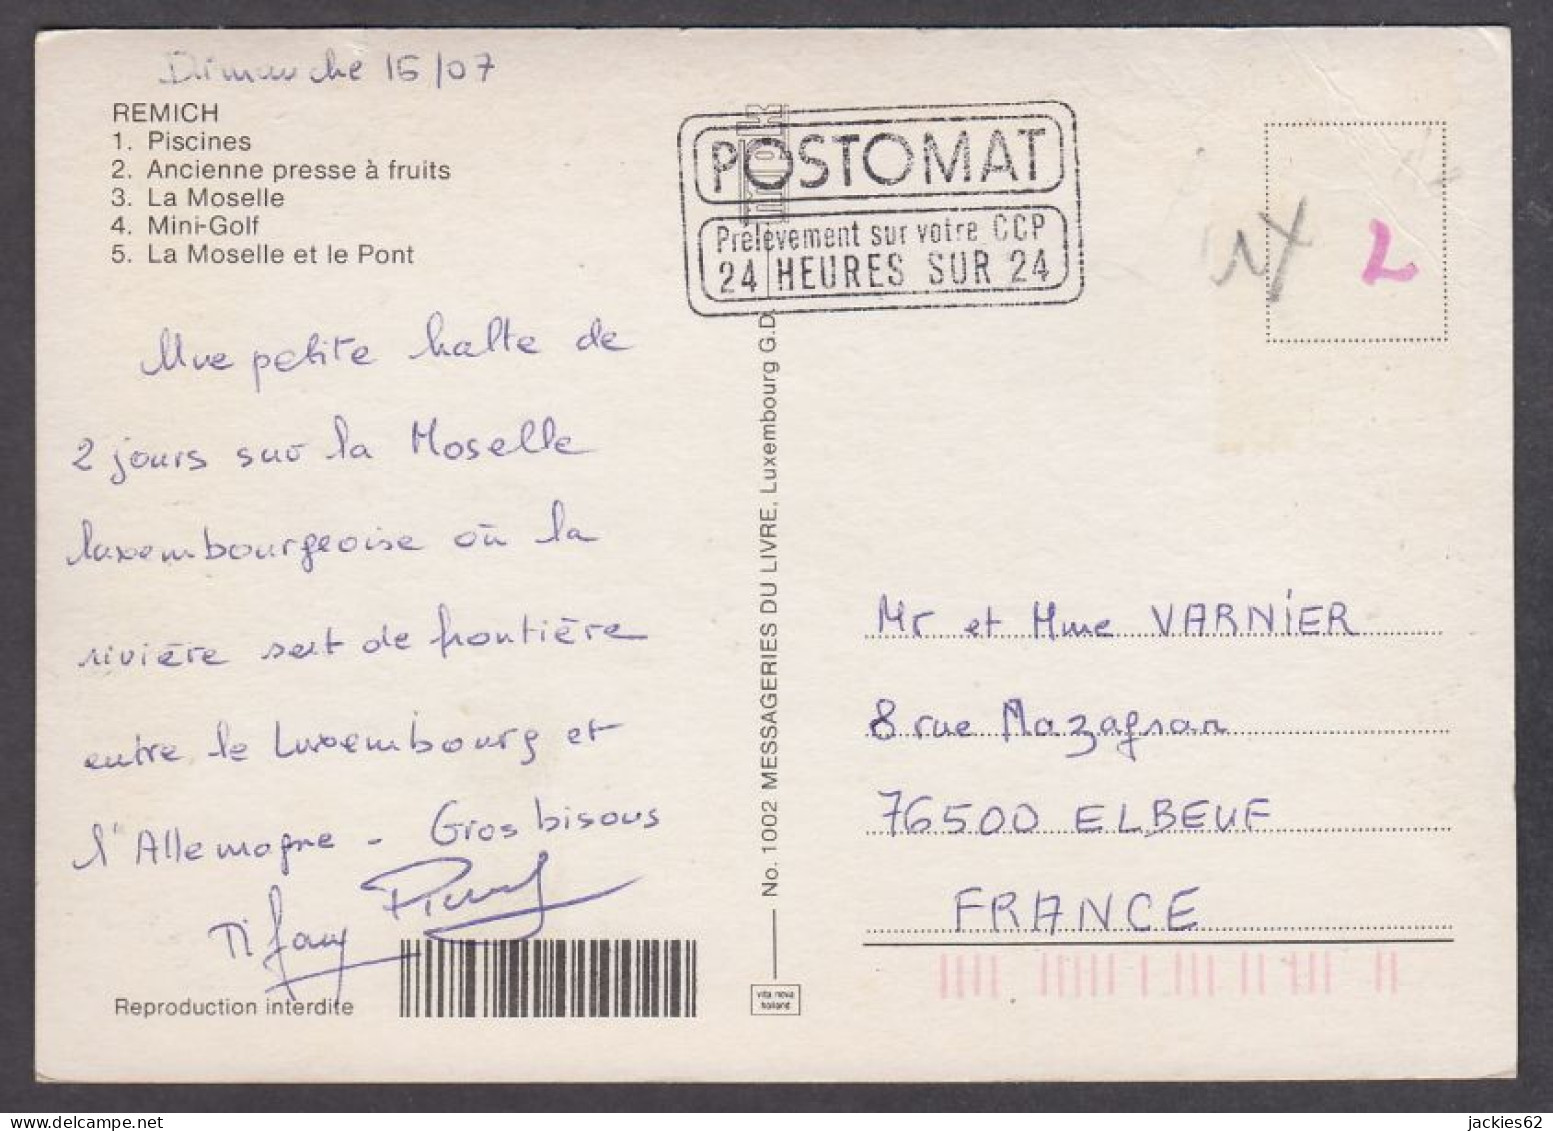 Dimanche 15/07
REMICH
1. Piscines
2. Ancienne presse à fruits
3. La Moselle
4. Mini-Golf
5. La Moselle et le Pont
Une petite halte de
2 jours sur la Moselle
luxembourgeoise où la
rivière sert de frontière
entre le Luxembourg et
l'Allemagne - Gros bisous
Tifany
Reproduction interdite
POSTOMAT
Prélèvement sur votre CCP
24 HEURES SUR 24
No. 1002 MESSAGERIES DU LIVRE, Luxembourg G.D.
vita nova
holland
L
Mr et Mme VARNIER
8 rue Mazagran
76500 ELBEUF
FRANCE
jackies62